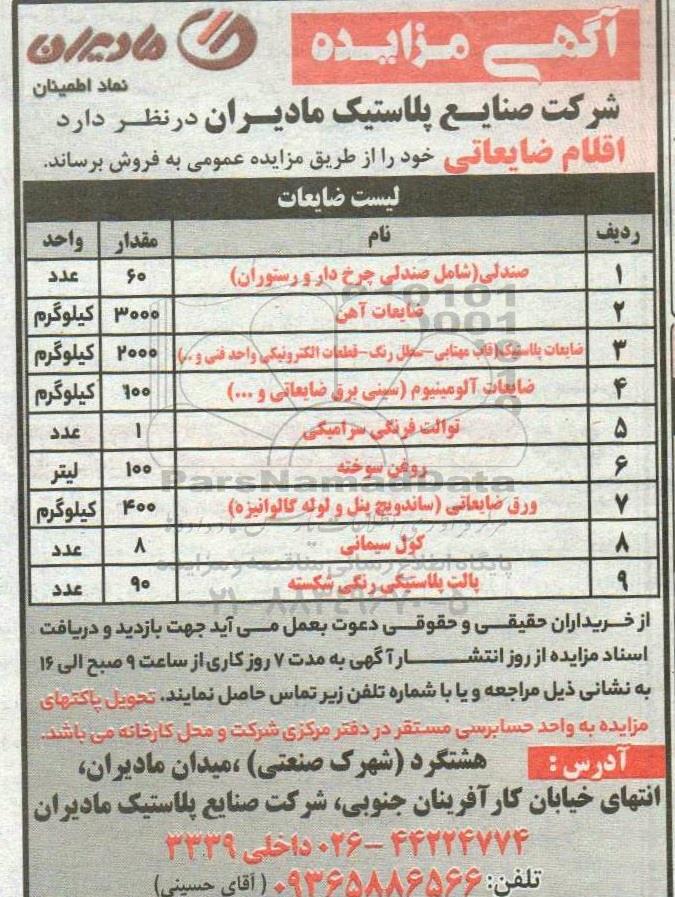 آگهی مزایده
مادیران
نماد اطمینان
شرکت صنایع پلاستیک مادیران در نظر دارد
اقلام ضایعاتی خود را از طریق مزایده عمومی به فروش برساند.
لیست ضایعات
ردیف نام مقدار واحد
۱ صندلی(شامل صندلی چرخ دار و رستوران) ۶۰ عدد
۲ ضایعات آهن ۳۰۰۰ کیلوگرم
۳ ضایعات پلاستیک(قاب مهتابی-سطل رنگ-قطعات الکترونیکی واحد فنی و ...) ۲۰۰۰ کیلوگرم
۴ ضایعات آلومینیوم (سینی برق ضایعاتی و ...) ۶۰۰ کیلوگرم
۵ توالت فرنگی سرامیکی ۱ عدد
۶ روغن سوخته ۱۰۰ لیتر
۷ ورق ضایعاتی (ساندویچ پنل و لوله گالوانیزه) ۴۰۰ کیلوگرم
۸ کول سیمانی ۸ عدد
۹ پالت پلاستیکی رنگی شکسته ۹۰ عدد
ParsNamadData
پایگاه اطلاع رسانی مناقصه و مزایده
از خریداران حقیقی و حقوقی دعوت بعمل می آید جهت بازدید و دریافت
اسناد مزایده از روز انتشار آگهی به مدت ۷ روز کاری از ساعت ۹ صبح الی ۱۶
به نشانی ذیل مراجعه و یا با شماره تلفن زیر تماس حاصل نمایند. تحویل پاکتهای
مزایده به واحد حسابرسی مستقر در دفتر مرکزی شرکت و محل کارخانه می باشد.
آدرس: هشتگرد (شهرک صنعتی) ،میدان مادیران،
انتهای خیابان کارآفرینان جنوبی، شرکت صنایع پلاستیک مادیران
۰۲۶-۴۴۲۲۴۷۷۴ داخلی ۳۳۳۹
تلفن: ۰۹۳۶۵۸۸۶۵۶۶ (آقای حسینی)